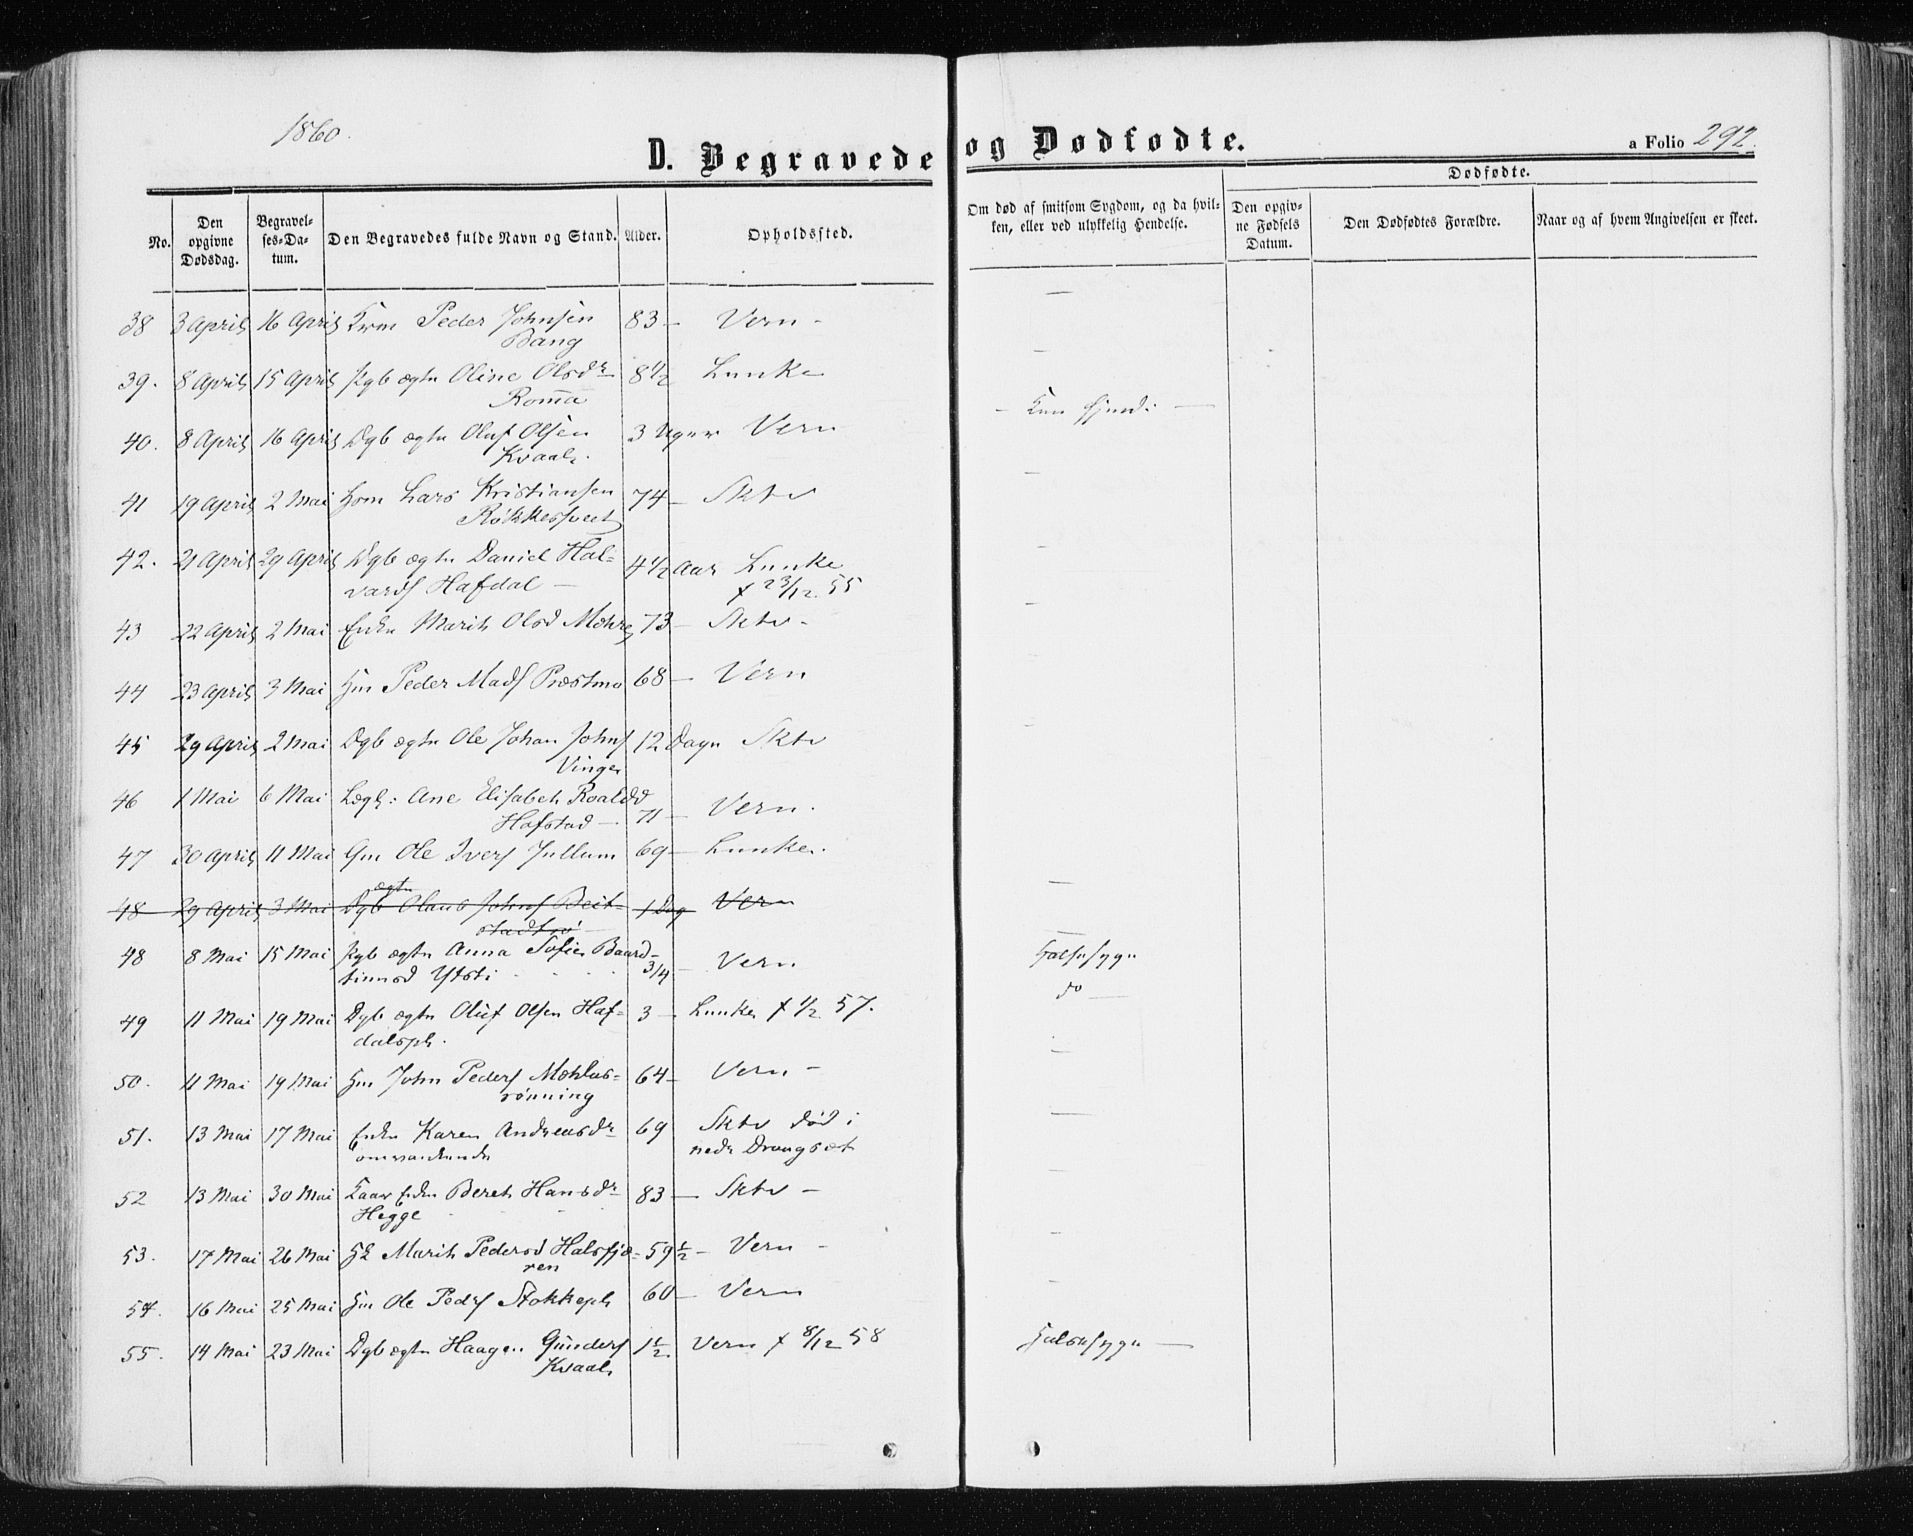 1860.
D. Begravede og Dødfødte.
a Folio 292.
No.
Den opgivne Dødsdag.
Begravelses-Datum.
Den Begravedes fulde Navn og Stand.
Alder.
Opholdssted.
Om død af smitsom Sygdom, og da hvilken, eller ved ulykkelig Hendelse.
Dødfødte.
Den opgivne Fødsels Datum.
Den Dødfødtes Forældre.
Naar og af hvem Angivelsen er skeet.
38 3 April 16 April Peder Johnsen 83 — Vern —
Bang
39. 8 April 15 April Pgb ægte Oline Olsdr 8 1/2 Lunke
Romma
40. 8 April 16 April Dgb ægte Oluf Olsen 3 Uger Vern
Kvaal.
41 19 April 2 Mai Lars Kristiansen 74 — Sktv
Røkkesveet
42. 21 April 29 April Dgb ægte Daniel Hal- 4 1/2 Aar Lunke
vards Hafdal — f 23/12 55
43 22 April 2 Mai Enke Marit Olsd Mæhre 73 — Sktv —
44 23 April 3 Mai Gm Peder Mads Præstmo 68 — Vern
45 29 April 2 Mai Dgb ægte Ole Johan Johns 12 Dage Sktv
Vinge
46 1 Mai 6 Mai Lægd: Ane Elisabeth Roaldsd
Hafstad — 71 — Vern.
47 30 April 11 Mai Gm Ole Ivers Jullum 69 — Lunke.
ægte
48 29 April 3 Mai Dgb Olaus Johns Beit- 1 Dag Vern
stadtrø
48 8 Mai 15 Mai Pgb ægte Anna Sofie Baard- Halssyge
tinusd Ytsti 3/4 — Vern
49 11 Mai 19 Mai Dgb ægte Oluf Olsen Haf- 3 — Lunke f 1/2 57. do —
dalspl.
50. 11 Mai 19 Mai Gm John Peders Mæhlas- 64 — Vern —
rønning
51. 13 Mai 17 Mai Enke Karen Andreasdr 69 Sktv død i
omvankende nedr Draugsæt
52 13 Mai 30 Mai Kaar Enke Beret Hansdr 83 — Sktv —
Hegge
53. 17 Mai 26 Mai Marit Pedersd Halsfjæ- 59 1/2 — Vern —
ren
54. 16 Mai 25 Mai Gm Ole Peders Stokkepl 60 — Vern
55. 14 Mai 23 Mai Dgb ægte Haagen Gunders 1 1/2 Vern f 8/12 58 Halssyge —
Kvaal